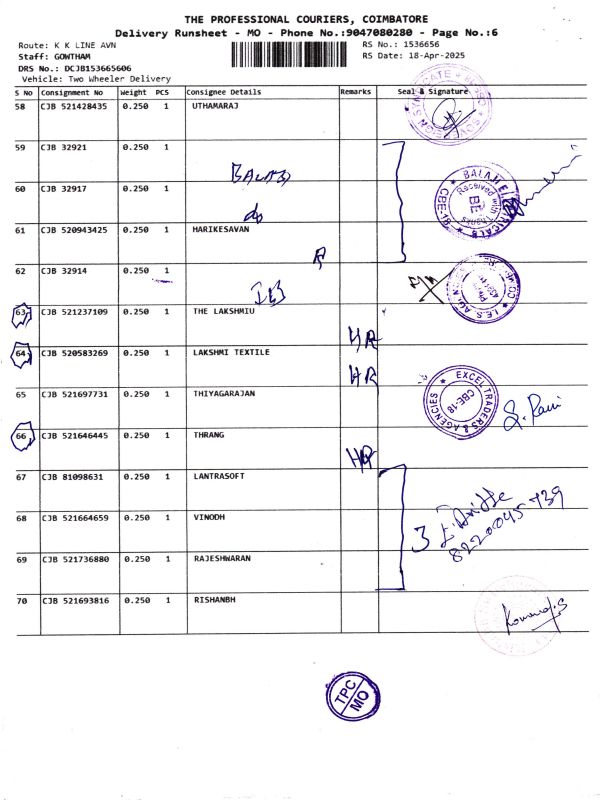 THE PROFESSIONAL COURIERS, COIMBATORE
Delivery Runsheet - MO - Phone No.:9047080280 - Page No.:6
Route: K K LINE AVN
RS No.: 1536656
Staff: GOWTHAM
RS Date: 18-Apr-2025
DRS No.: DCJB153665606
Vehicle: Two Wheeler Delivery
S No Consignment No Weight PCS Consignee Details Remarks Seal & Signature
58 CJB 521428435 0.250 1 UTHAMARAJ
59 CJB 32921 0.250 1
BALAJI
60 CJB 32917 0.250 1
do
BALAJI
Received with Thanks
CBE-18
61 CJB 520943425 0.250 1 HARIKESAVAN
62 CJB 32914 0.250 1
63 CJB 521237109 0.250 1 THE LAKSHMIU
HR
64 CJB 520583269 0.250 1 LAKSHMI TEXTILE
HR
65 CJB 521697731 0.250 1 THIYAGARAJAN
EXCEL TRADERS & AGENCIES
CBE-18
S. Ravi
66 CJB 521646445 0.250 1 THRANG
67 CJB 81098631 0.250 1 LANTRASOFT
68 CJB 521664659 0.250 1 VINODH
3
8220045739
69 CJB 521736880 0.250 1 RAJESHWARAN
70 CJB 521693816 0.250 1 RISHANBH
TPC
MO